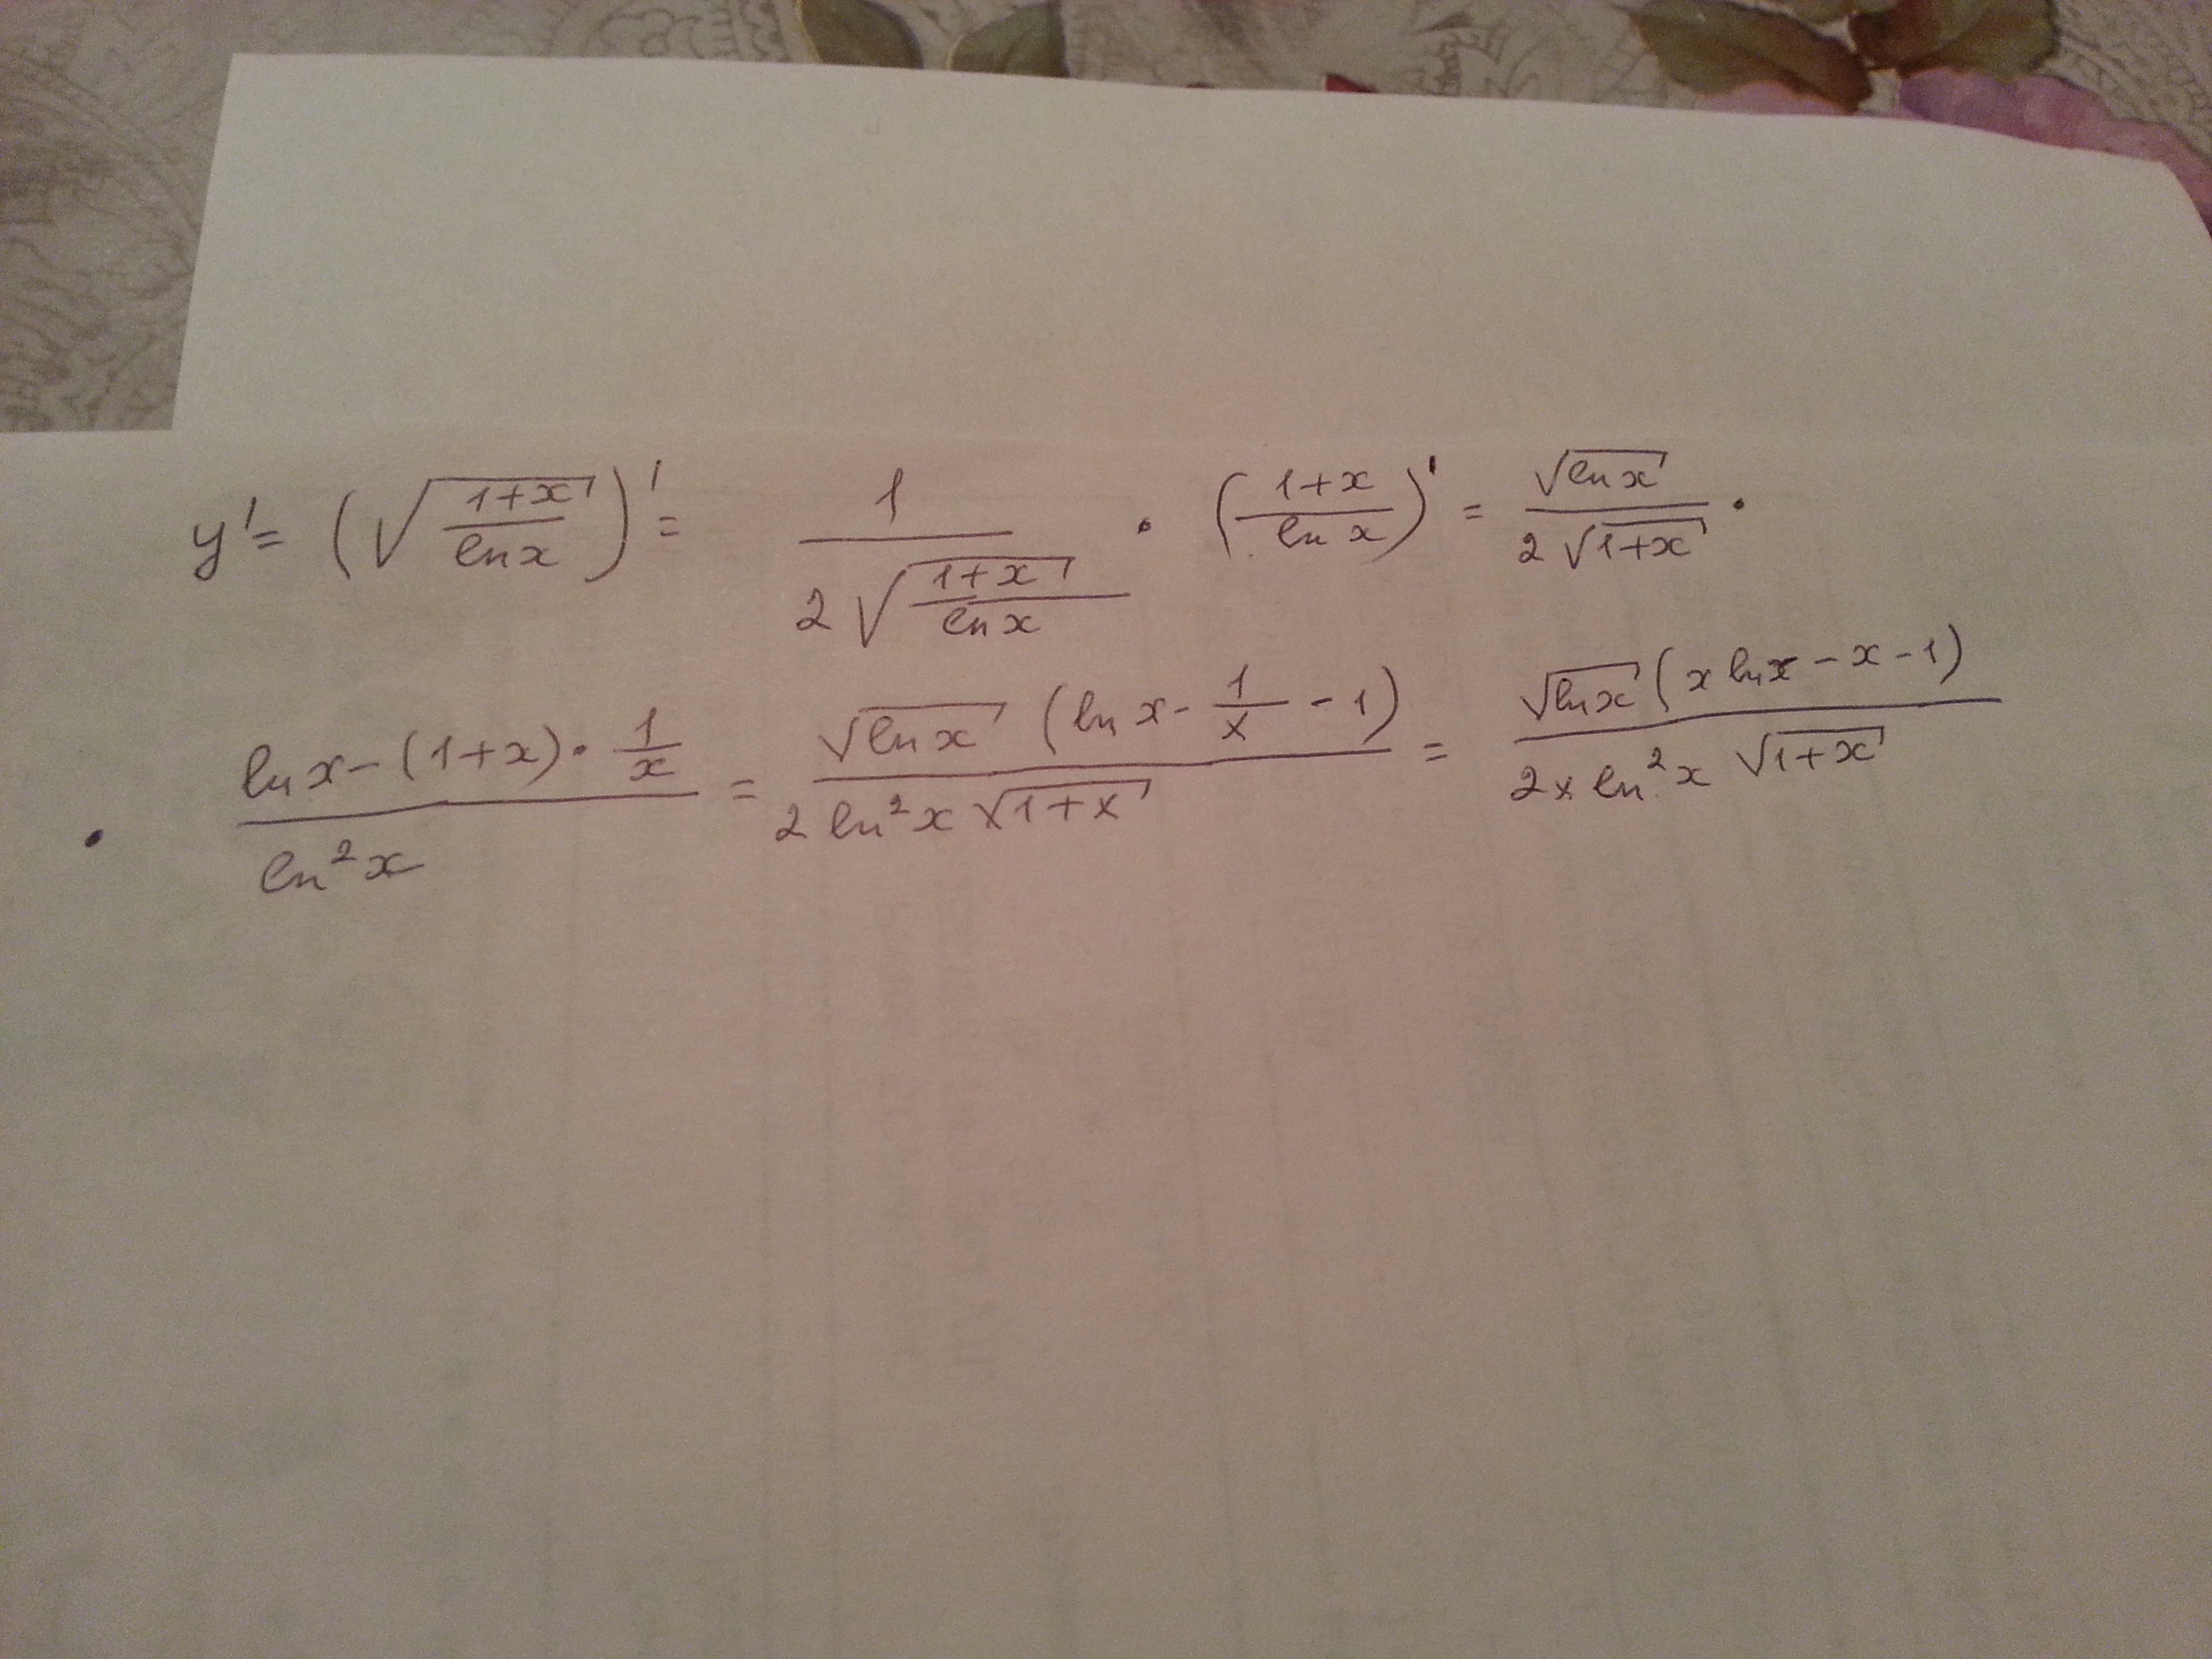 y' = (√((1+x)/(ln x)))' = 1/(2√((1+x)/(ln x))) · ((1+x)/(ln x))' = (√(ln x))/(2√(1+x)) ·
· (ln x − (1+x) · 1/x)/(ln² x) = (√(ln x) (ln x − 1/x − 1))/(2 ln² x √(1+x)) = (√(ln x) (x ln x − x − 1))/(2x ln² x √(1+x))